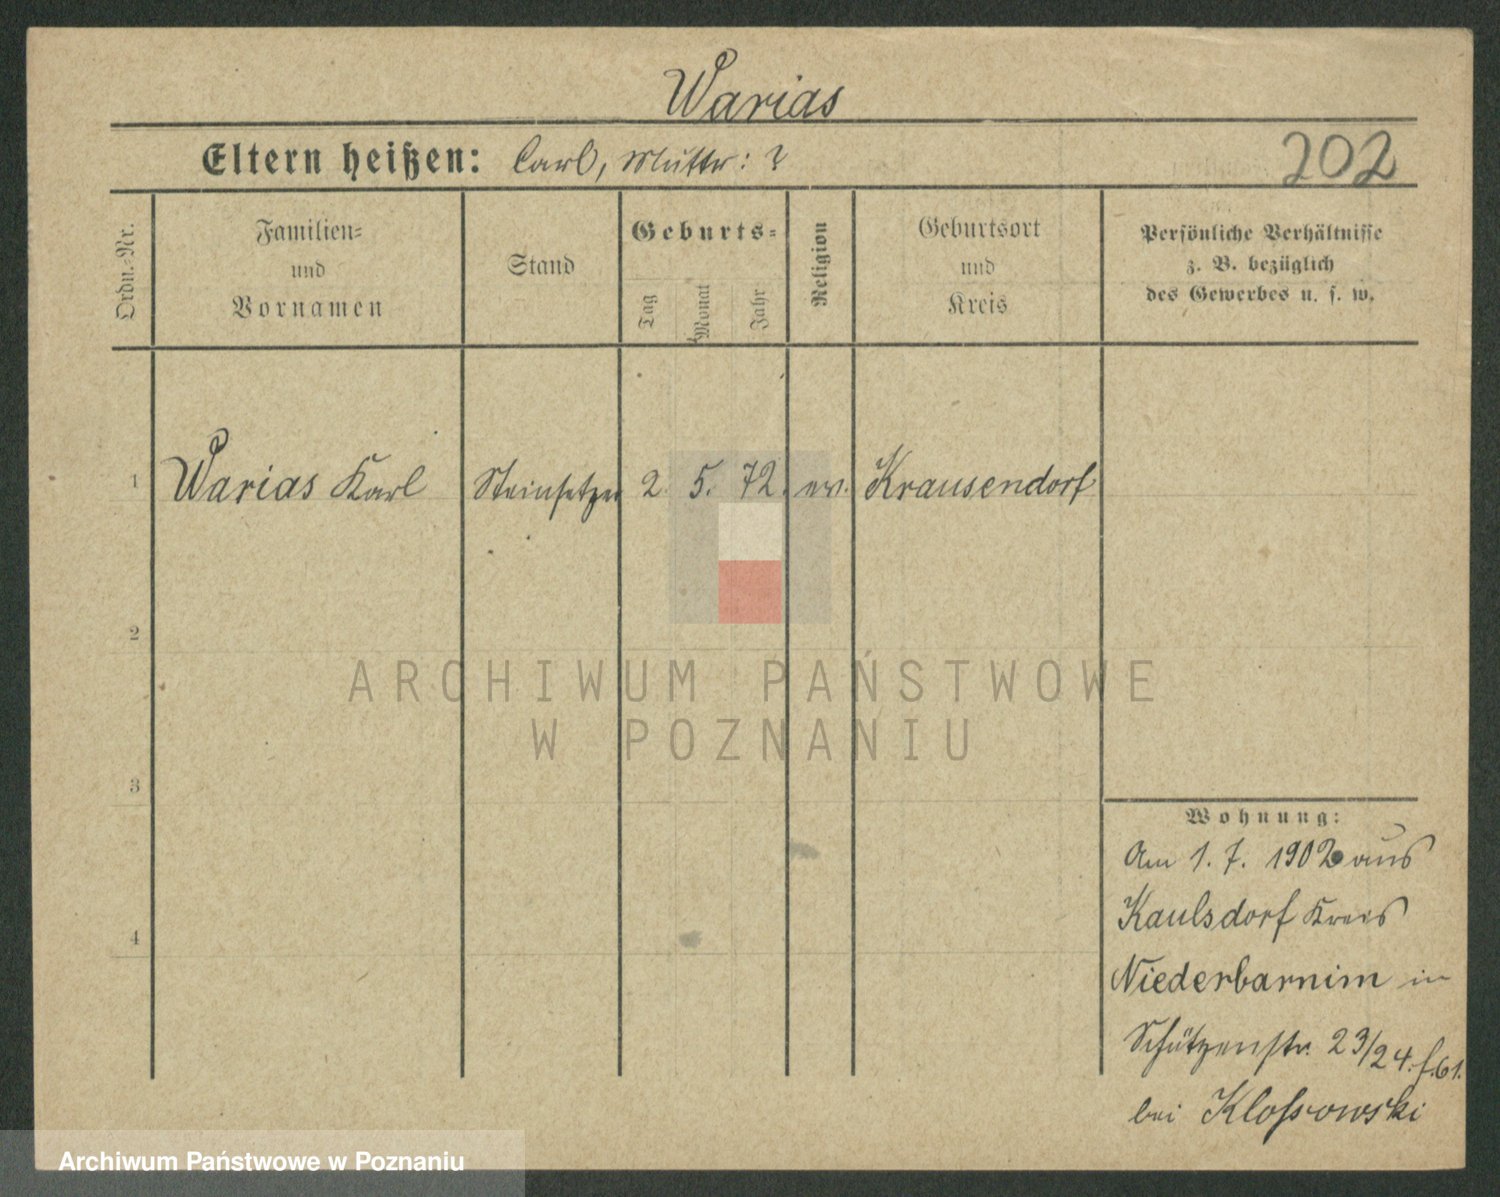 Warias
Eltern heißen: Carl, Mutter: ?
202
Ordn.-Nr.
Familien-
und
Vornamen
Stand
Geburts-
Tag
Monat
Jahr
Religion
Geburtsort
und
Kreis
Persönliche Verhältnisse
z. B. bezüglich
des Gewerbes u. s. w.
1 Warias Karl Steinsetzer 2. 5. 72. ev. Krausendorf
2
3
4
ARCHIWUM PAŃSTWOWE
W POZNANIU
Wohnung:
Am 1. 7. 1902 aus
Kaulsdorf Kreis
Niederbarnim in
Schützenstr. 23/24. f. 61.
bei Klossowski
Archiwum Państwowe w Poznaniu